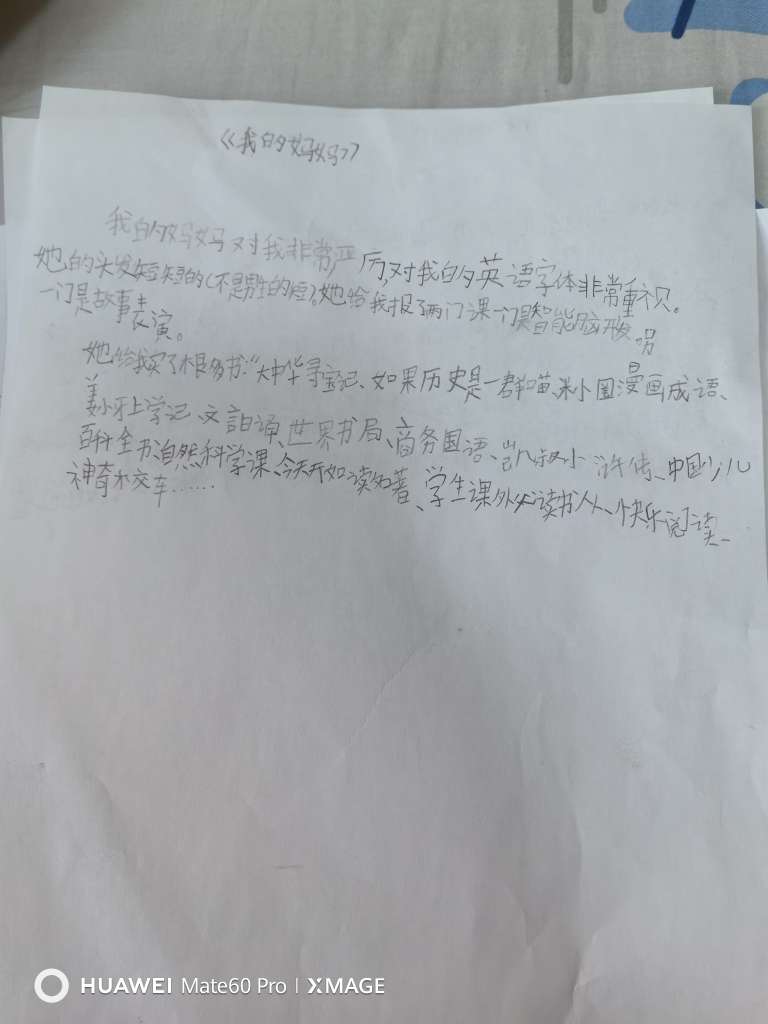 《我的妈妈》
我的妈妈对我非常严厉,对我的英语字体非常重视。
她的头发短短的(不是男生的短)。她给我报了两门课一门是智能脑波。另
一门是故事表演。
她给我买了很多书:“大中华寻宝记、如果历史是一群喵、米小圈漫画成语、
姜小牙上学记、文言诵、世界书局、商务国语、凯叔水浒传、中国少儿
百科全书、自然科学课、今天开如读名著、学生课外必读书从、快乐阅读、
神奇木交车……
HUAWEI Mate60 Pro | XMAGE